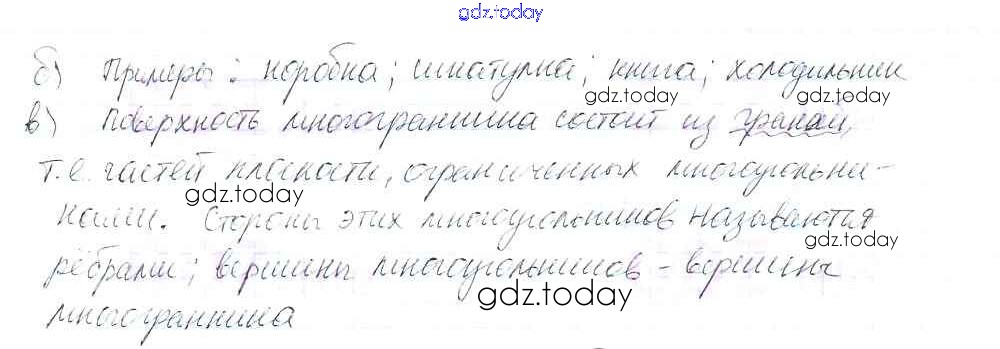 gdz.today
б) Примеры: коробка; шкатулка; книга; холодильник
gdz.today
gdz.today
в) Поверхность многогранника состоит из граней,
т.е. частей плоскости, ограниченных многоугольни-
gdz.today
ками. Стороны этих многоугольников называются
gdz.today
рёбрами; вершины многоугольников - вершины
gdz.today
многогранника